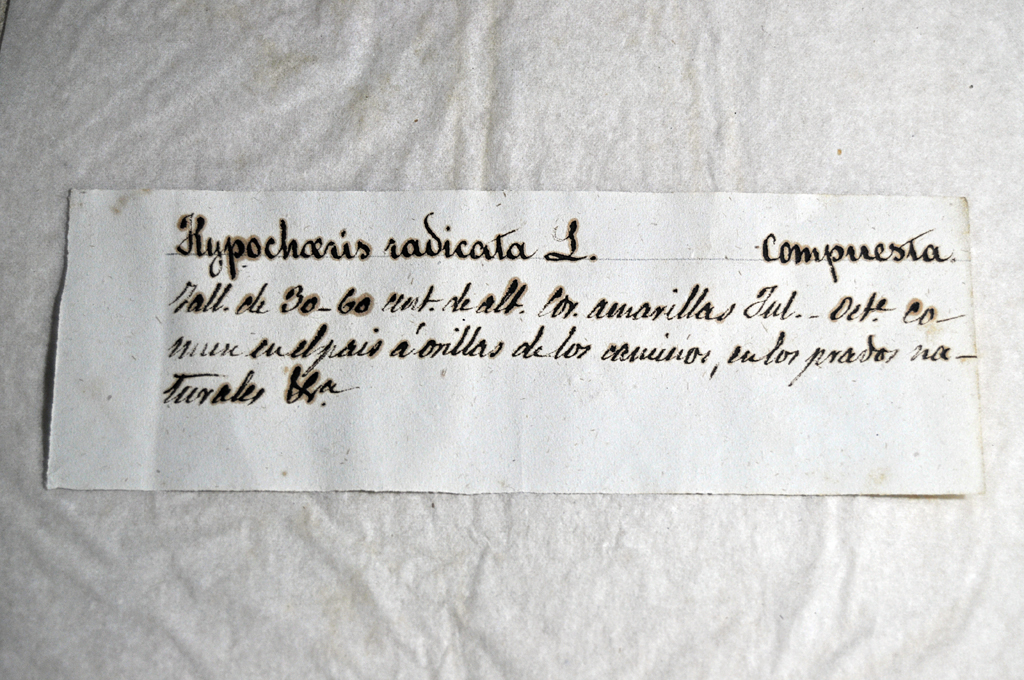 Hypochæris radicata L. Compuesta.
Tall. de 30-60 cent. de alt. Cor. amarillas Jul. - Octe. co-
mun en el pais á orillas de los caminos, en los prados na-
turales &a.